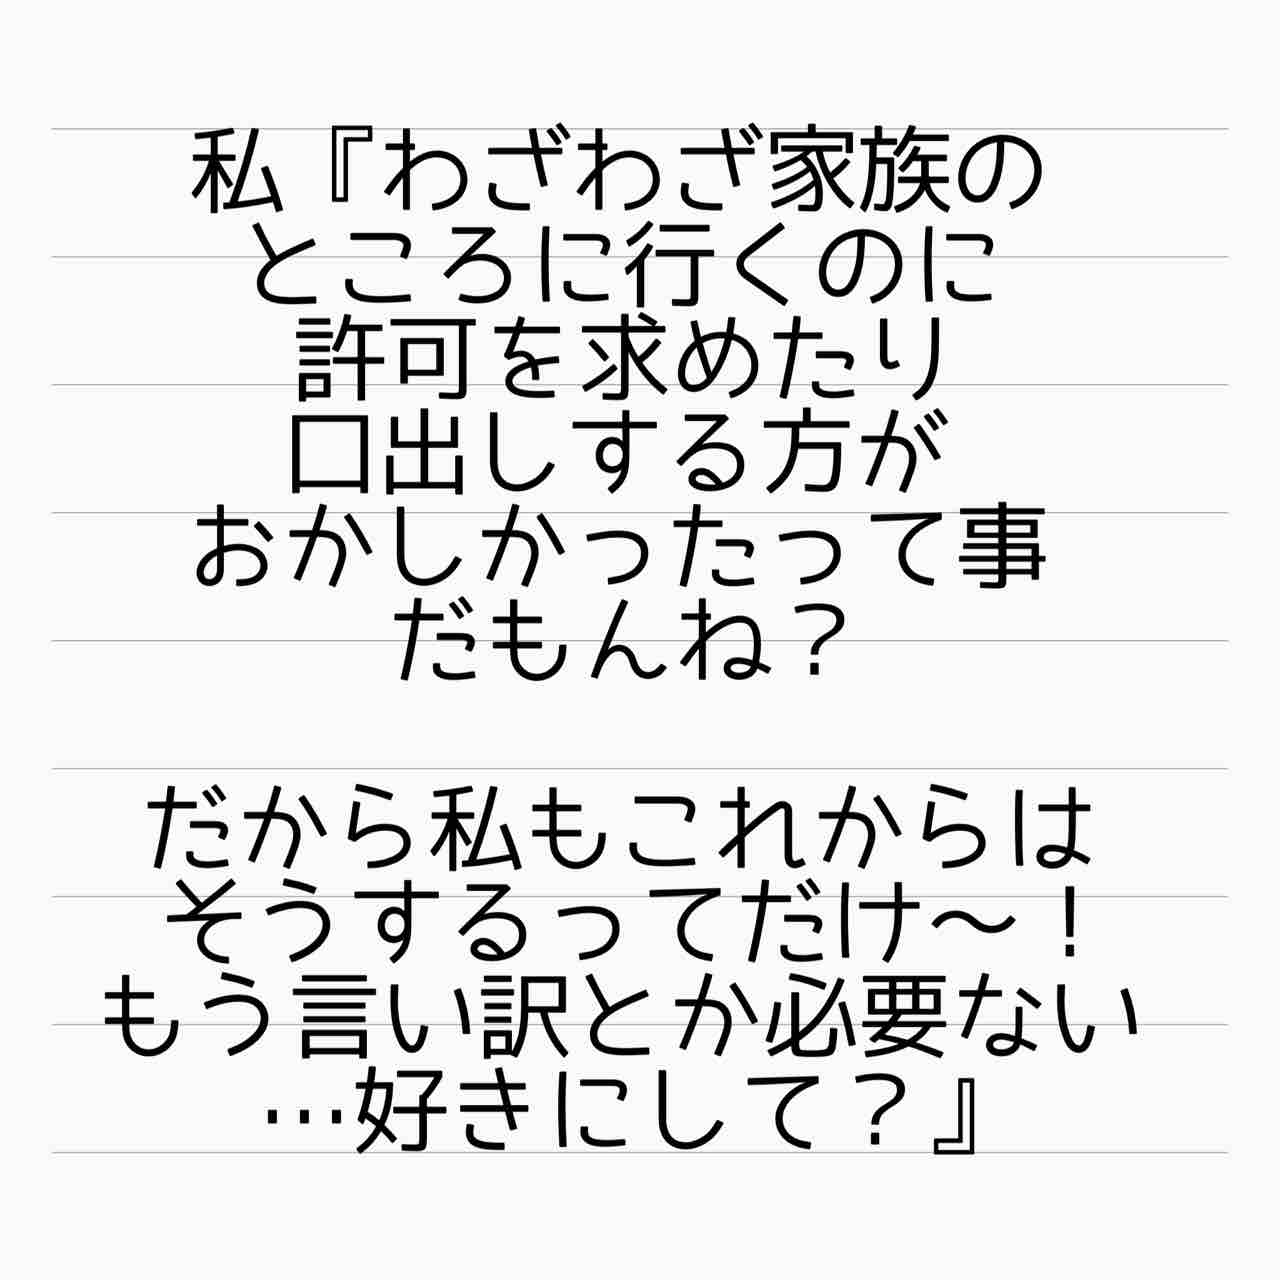 私『わざわざ家族の
ところに行くのに
許可を求めたり
口出しする方が
おかしかったって事
だもんね？
だから私もこれからは
そうするってだけ〜！
もう言い訳とか必要ない
…好きにして？』